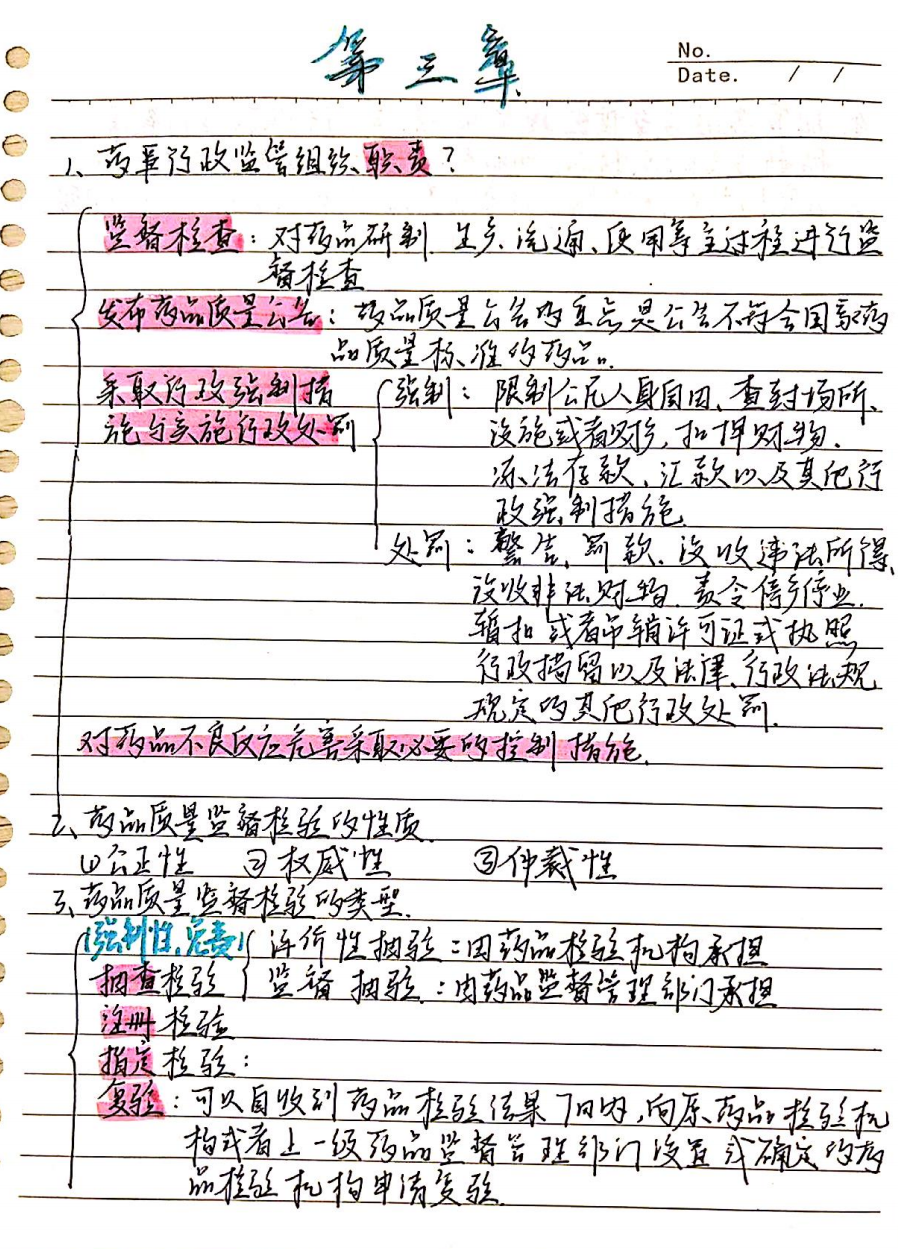 第三章
No.
Date. / /
1、药事行政监管组织职责？
监督检查：对药品研制、生产、流通、使用等全过程进行监
督检查
发布药品质量公告：药品质量公告的重点是公告不符合国家药
品质量标准的药品。
采取行政强制措
施与实施行政处罚
强制：限制公民人身自由、查封场所、
设施或者财物，扣押财物、
冻结存款、汇款以及其他行
政强制措施
处罚：警告、罚款、没收违法所得、
没收非法财物、责令停产停业、
暂扣或者吊销许可证或执照、
行政拘留以及法律、行政法规
规定的其他行政处罚
对药品不良反应危害采取必要的控制措施
2、药品质量监督检验的性质
①公正性 ②权威性 ③仲裁性
3、药品质量监督检验的类型
(强制性,免费)
抽查检验
评价性抽验：由药品检验机构承担
监督抽验：由药品监督管理部门承担
注册检验
指定检验：
复验：可以自收到药品检验结果7日内，向原药品检验机
构或者上一级药品监督管理部门设置或确定的药
品检验机构申请复验